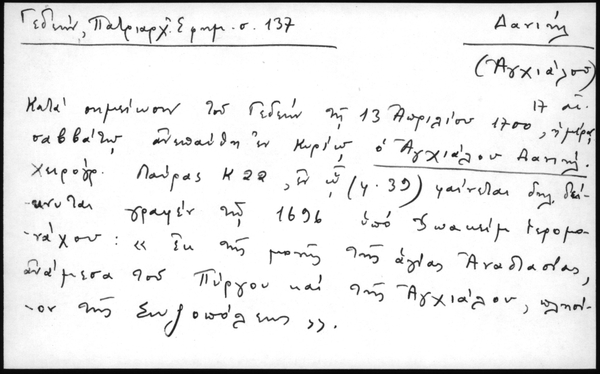 Γεδεών, Πατριαρχ. Εφημ. σ. 137
Δανιήλ
(Ἀγχιάλου)
17 αἰ.
Κατά σημείωσιν τοῦ Γεδεών τῇ 13 Ἀπριλίου 1700, ἡμέρᾳ
σαββάτῳ ἀνεπαύθη ἐν Κυρίῳ ὁ Ἀγχιάλου Δανιήλ.
Χειρόγρ. Λαύρας Κ 22, ἐν ᾧ (φ. 39) φαίνεται δηλ. δεί-
-κνυται γραφέν τῷ 1696 ὑπό Ἰωακείμ ἱερομο-
-νάχου: «Ἐκ τῆς μονῆς τῆς ἁγίας Ἀναστασίας,
ἀνάμεσα τοῦ Πύργου καί τῆς Ἀγχιάλου, πλησί-
-ον τῆς Σωζοπόλεως».